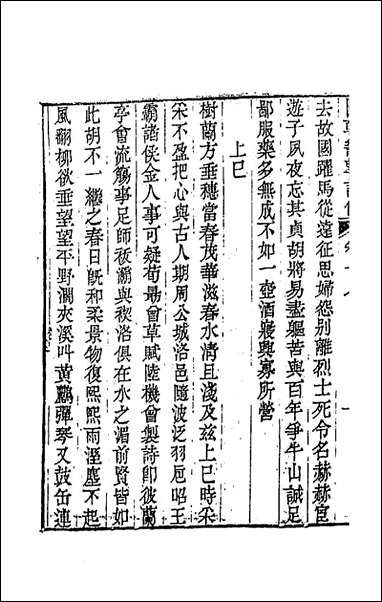 去故國躍馬從遠征思婦怨别離烈士死令名赫赫宦
遊子夙夜忘其貞胡將易盡軀苦與百年爭牛山誠足
鄙服藥多無成不如一壺酒寢興寡所營
上巳
樹蘭方垂穗當春茂華滋春水淸且淺及兹上巳時采
采不盈把心與古人期周公城洛邑隨波泛羽卮昭王
霸諸侯金人事可疑荀勗會草賦陸機曾製詩卽彼蘭
亭會流觴事足師祓瀨與稧洛俱在水之湄前賢皆如
此胡不一繼之春日旣和柔景物復熙熙雨溼塵不起
風翻柳欲垂望望平野濶夾溪叫黄鸝彈琴又鼓缶連